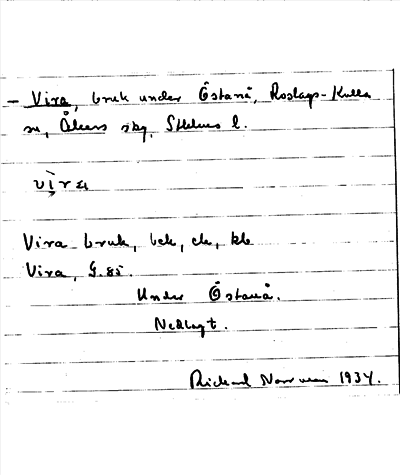 - Vira, bruk under Östanå, Roslags-Kulla
sn, Åkers skg, Sthlms l.
vìra
Vira bruk, bek, ek, kk
Vira, G.85.
Under Östanå.
Nedlagt.
Rickard Norrman 1934.